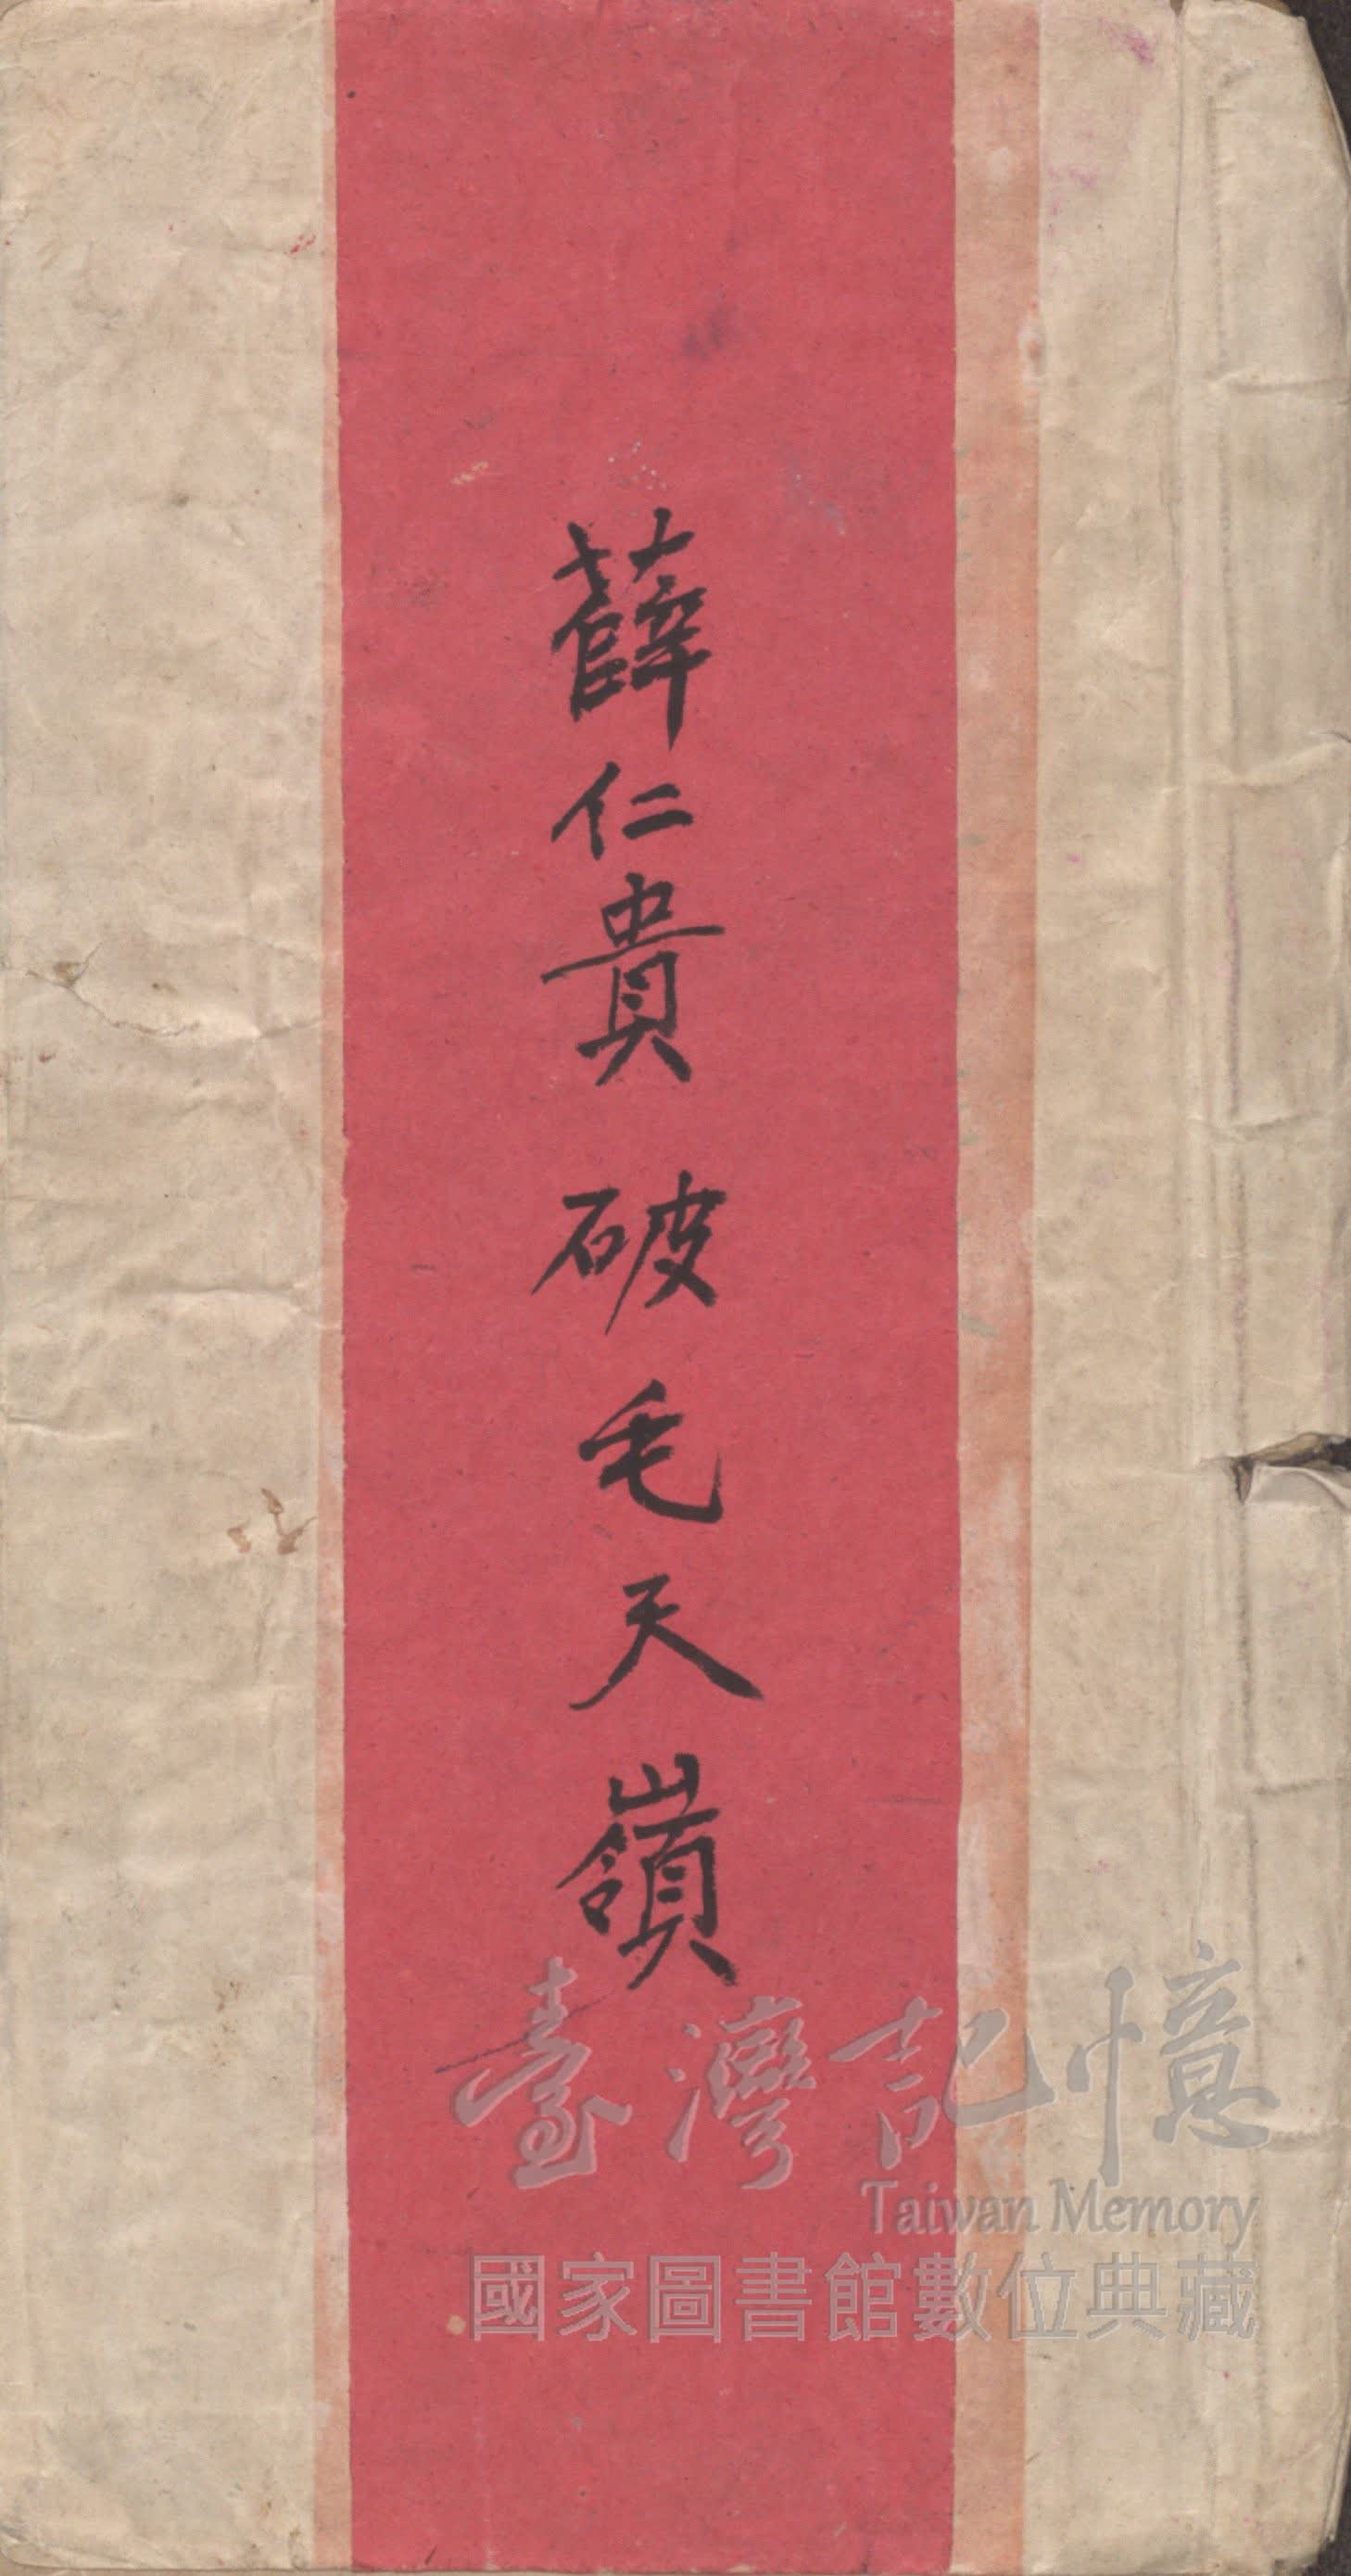 薛仁貴破毛天嶺
臺灣記憶
Taiwan Memory
國家圖書館數位典藏